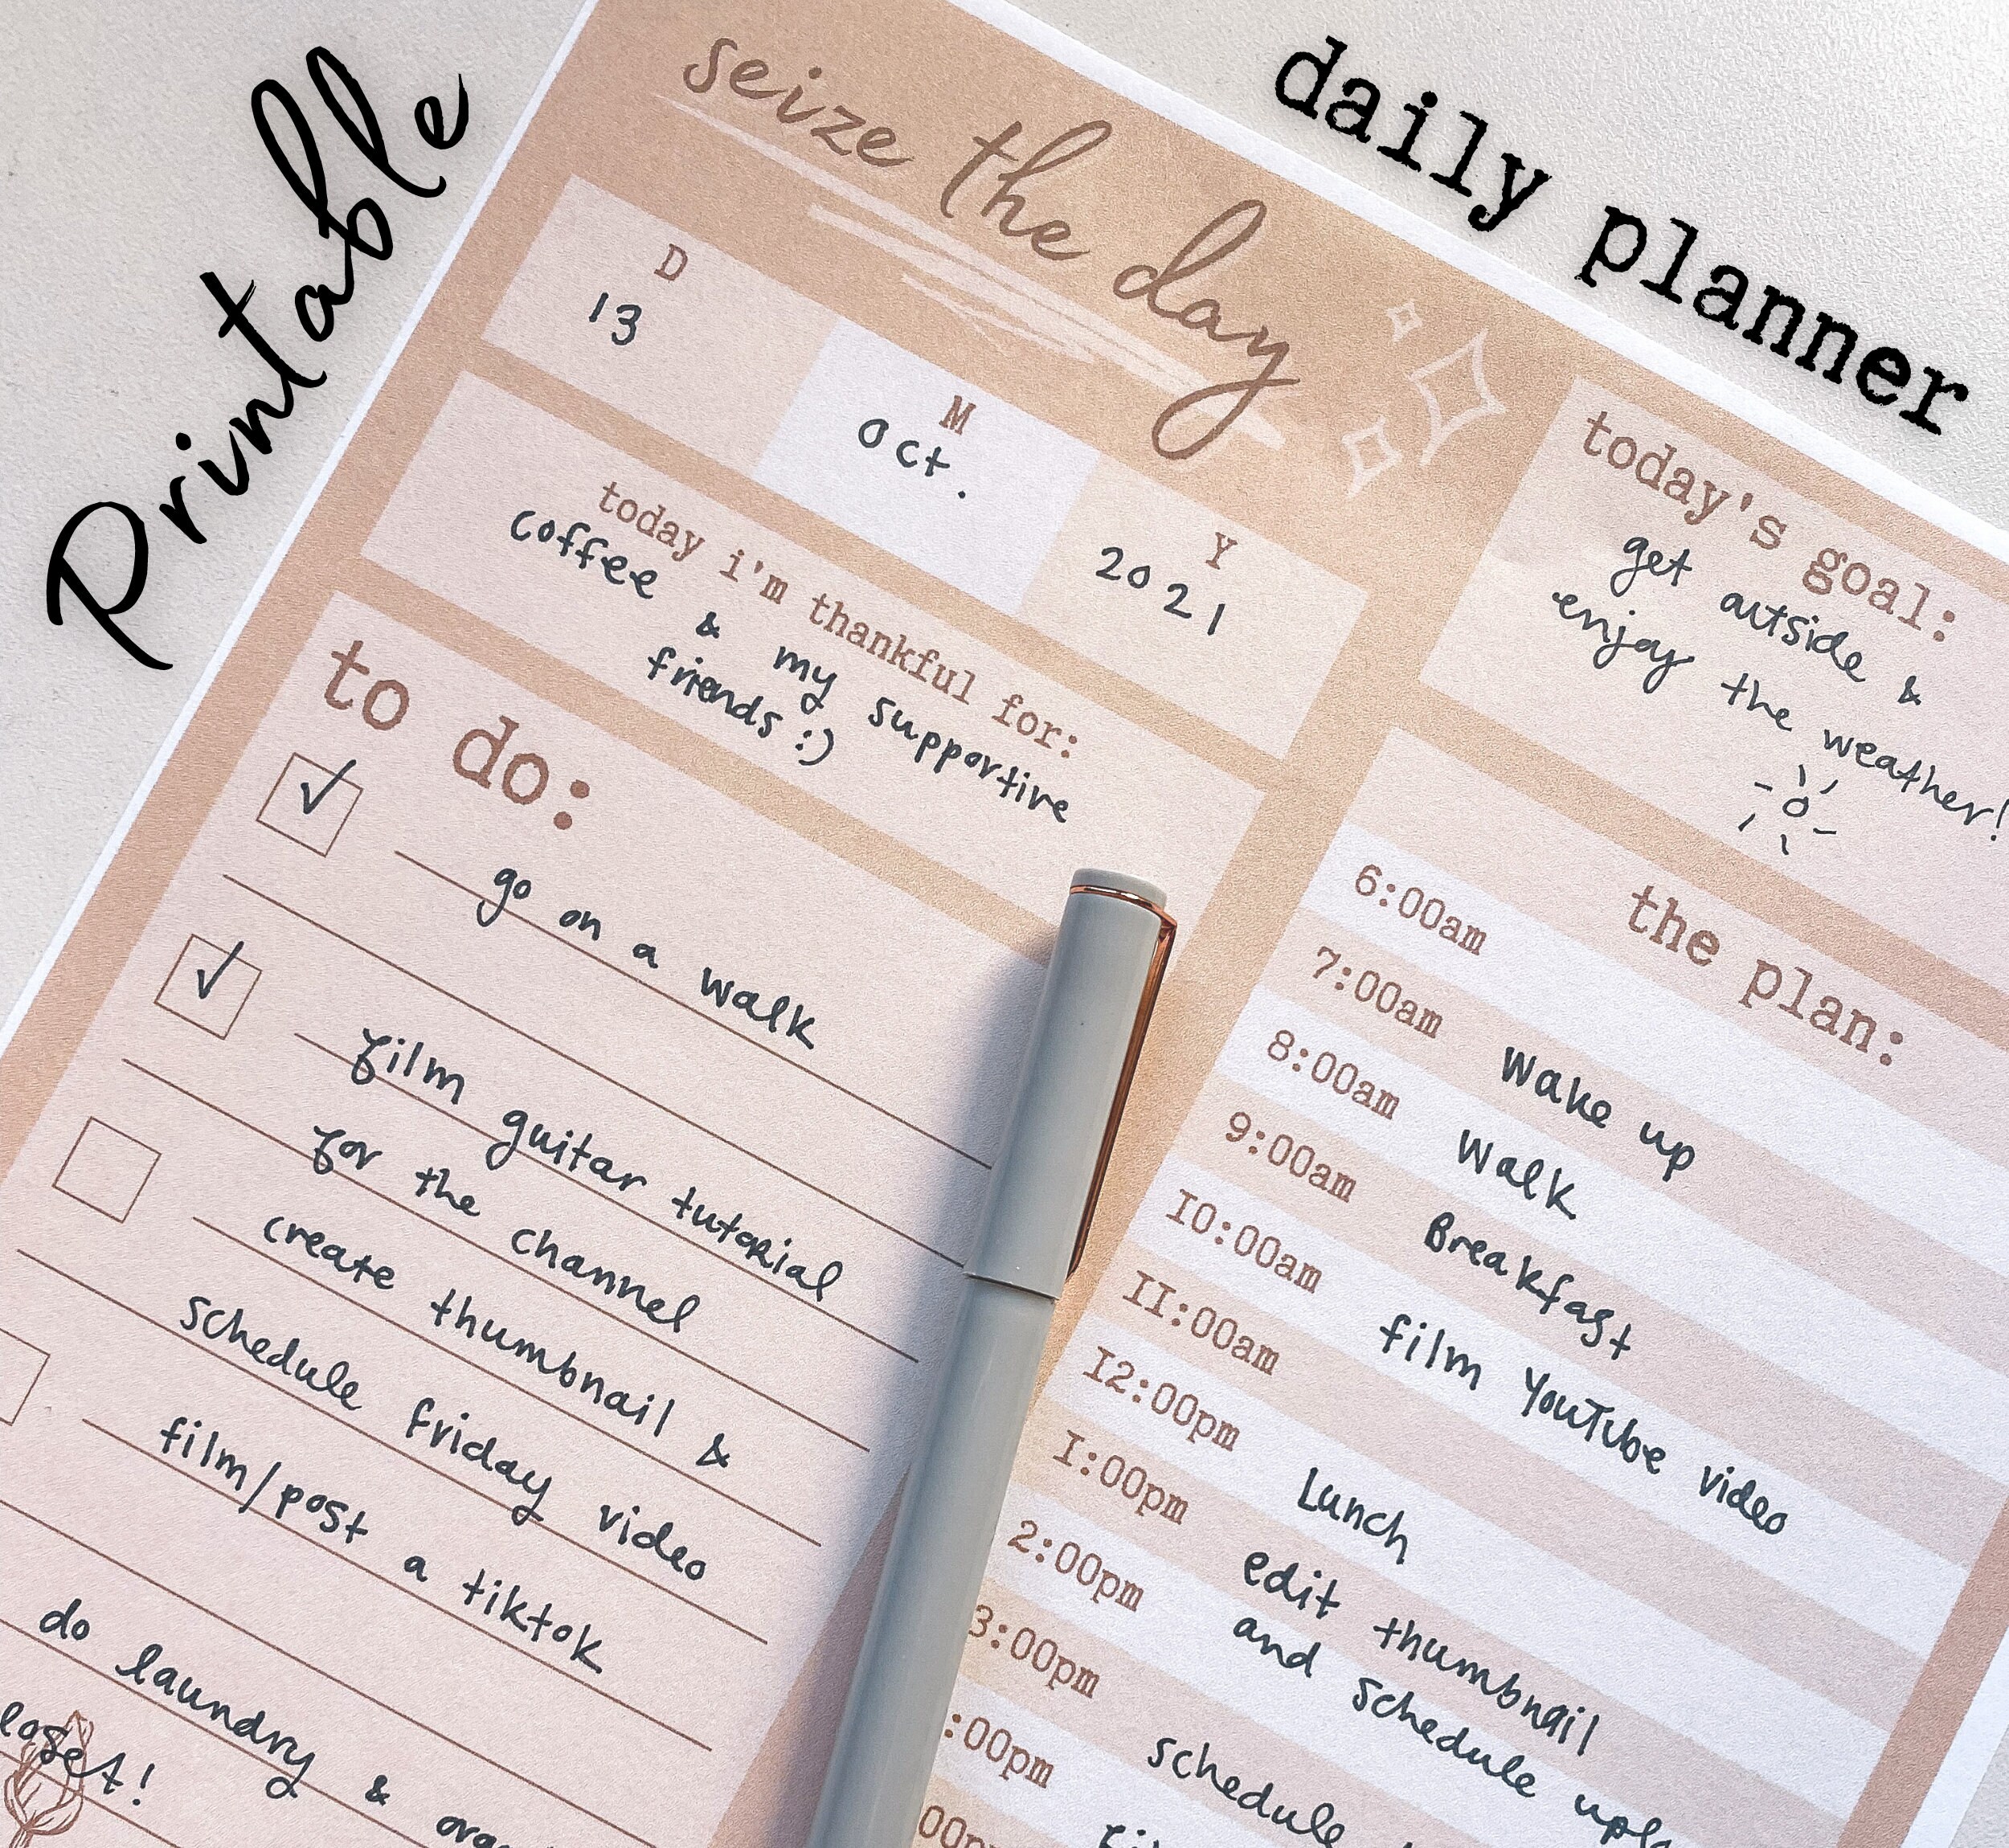 Printable
daily planner
seize the day
D
13
M
Oct.
Y
2021
today i'm thankful for:
coffee & my supportive
friends :)
today's goal:
get outside &
enjoy the weather!
to do:
go on a walk
film guitar tutorial
for the channel
create thumbnail &
schedule friday video
film/post a tiktok
do laundry &
the plan:
6:00am
7:00am Wake up
8:00am Walk
9:00am Breakfast
10:00am film YouTube video
11:00am
12:00pm Lunch
1:00pm edit thumbnail
2:00pm and schedule
3:00pm schedule
:00pm